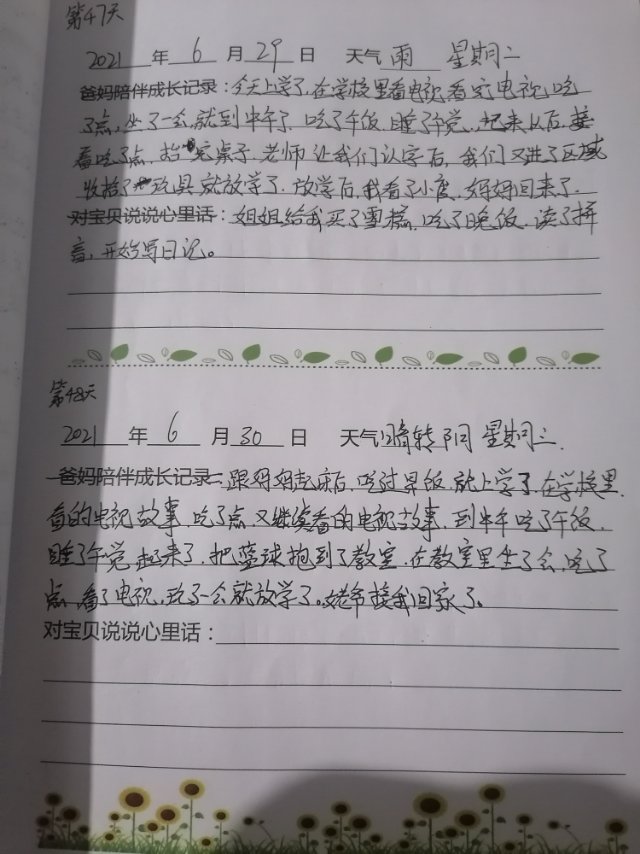 第47天
2021 年 6 月 29 日 天气 雨 星期二
爸妈陪伴成长记录：今天上学了，在学校里看电视，看完电视，吃
了点，坐了一会，就到中午了，吃了午饭，睡了午觉，起来以后，接
着吃了点，抬完桌子，老师让我们认字后，我们又进了区域
收拾了玩具就放学了，放学后，我看了小度，妈妈回来了，
对宝贝说说心里话：姐姐给我买了雪糕，吃了晚饭，读了拼
音，开始写日记。
第48天
2021 年 6 月 30 日 天气 晴转阴 星期三
爸妈陪伴成长记录：跟妈妈起床后，吃过早饭，就上学了，在学校里
看的电视故事，吃了点，又继续看的电视故事，到中午吃了午饭，
睡了午觉，起来了，把篮球抱到了教室，在教室里坐了会，吃了
点，看了电视，玩了一会就放学了。姥爷接我回家了。
对宝贝说说心里话：